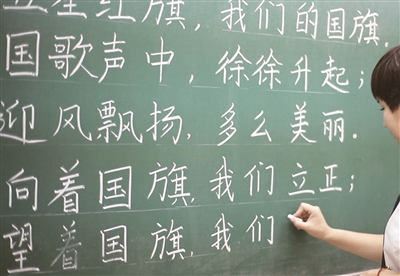 五星红旗,我们的国旗.
国歌声中,徐徐升起;
迎风飘扬,多么美丽.
向着国旗,我们立正;
望着国旗,我们